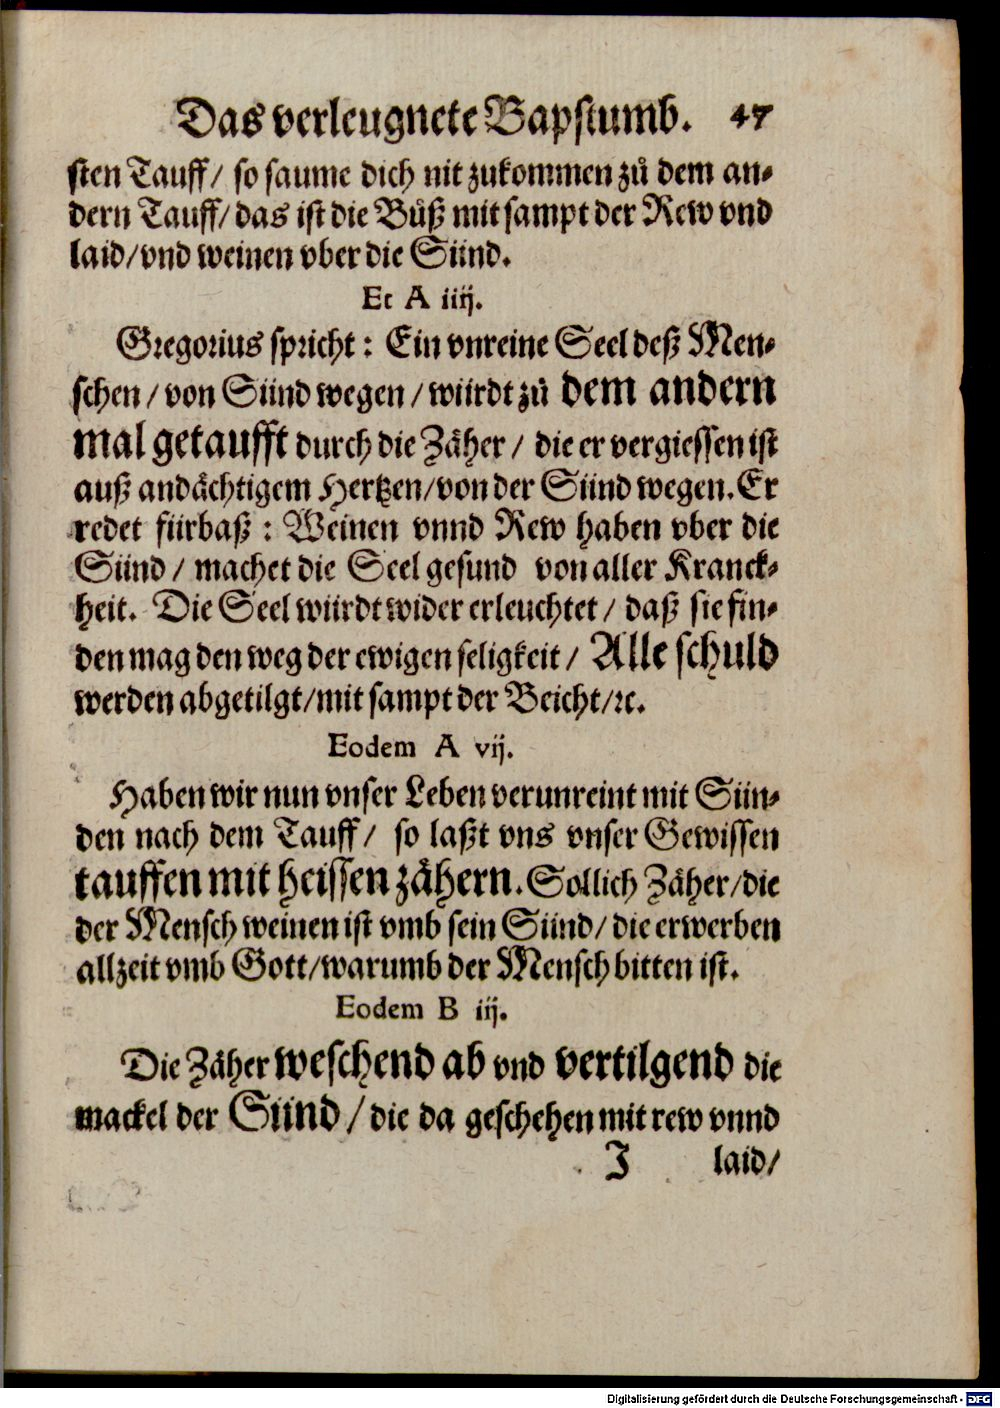 Das verleugnete Bapstumb. 47
sten Tauff/ so saume dich nit zukommen zů dem an-
dern Tauff/ das ist die Bůß mit sampt der Rew vnd
laid/vnd weinen vber die Sünd.
Et A iiij.
Gregorius spricht: Ein vnreine Seel deß Men-
schen/von Sünd wegen/würdt zů dem andern
mal getaufft durch die Zäher/ die er vergiessen ist
auß andächtigem Hertzen/von der Sünd wegen. Er
redet fürbaß: Weinen vnnd Rew haben vber die
Sünd/ machet die Seel gesund von aller Kranck-
heit. Die Seel würdt wider erleuchtet/ daß sie fin-
den mag den weg der ewigen seligkeit/ Alle schuld
werden abgetilgt/mit sampt der Beicht/ꝛc.
Eodem A vij.
Haben wir nun vnser Leben verunreint mit Sün-
den nach dem Tauff/ so laßt vns vnser Gewissen
tauffen mit heissen zähern. Sollich Zäher/die
der Mensch weinen ist vmb sein Sünd/die erwerben
allzeit vmb Gott/warumb der Mensch bitten ist.
Eodem B iij.
Die Zäher weschend ab vnd vertilgend die
mackel der Sünd/ die da geschehen mit rew vnnd
J laid/
Digitalisierung gefördert durch die Deutsche Forschungsgemeinschaft - DFG